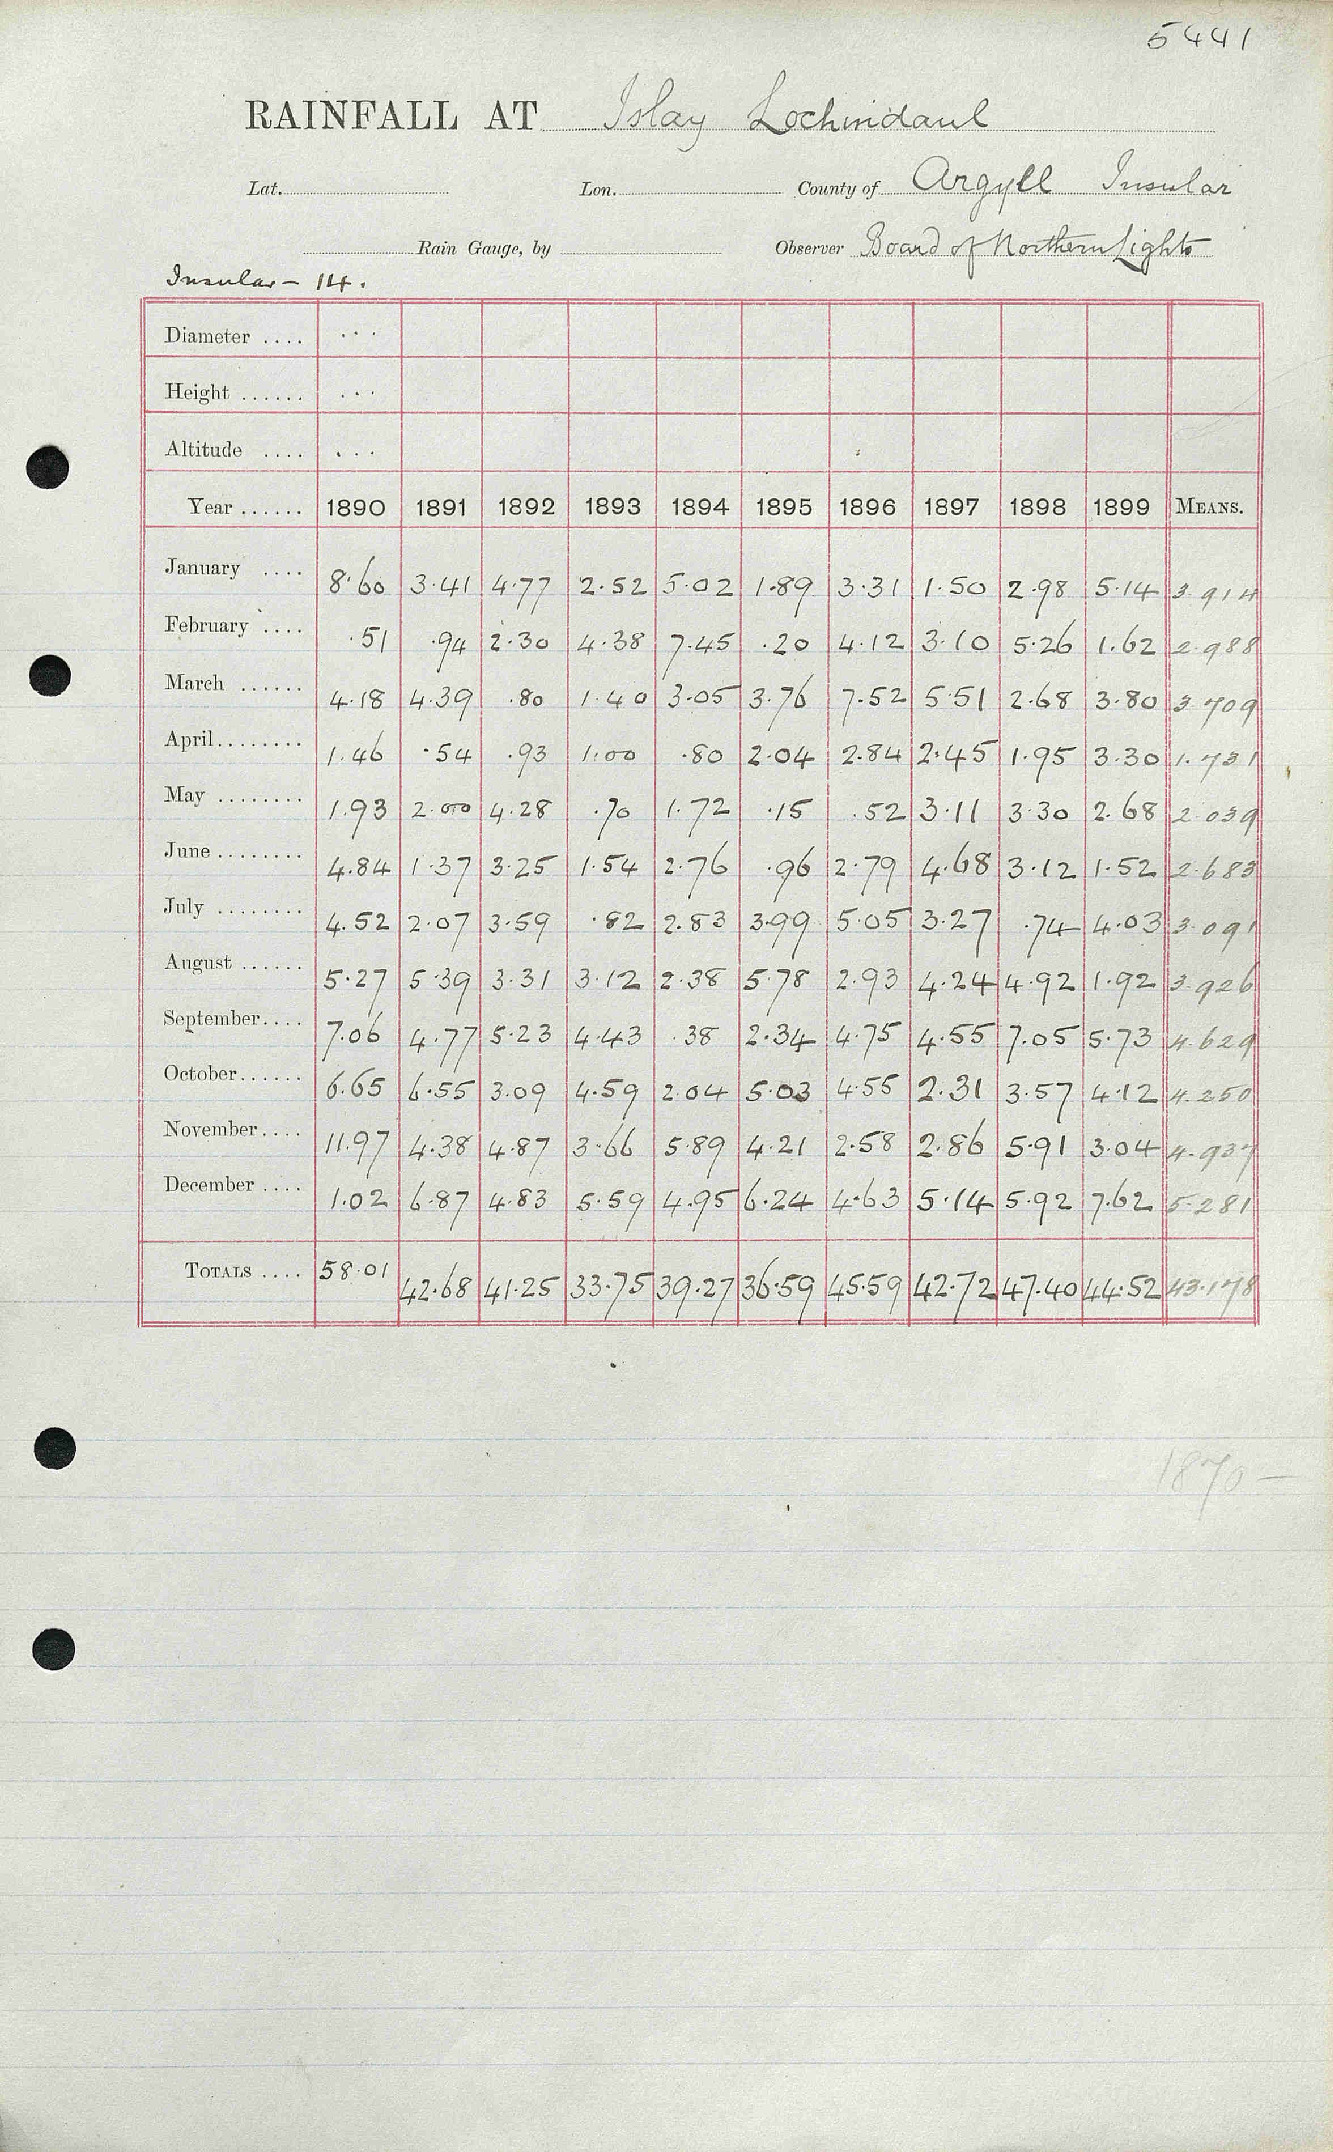 5441
RAINFALL AT Islay Lochindaul
Lat. Lon. County of Argyll Insular
Rain Gauge, by Observer Board of Northern Lights
Insular - 14.
Diameter .... ...
Height ...... ...
Altitude .... ...
Year ...... 1890 1891 1892 1893 1894 1895 1896 1897 1898 1899 MEANS.
January .... 8.60 3.41 4.77 2.52 5.02 1.89 3.31 1.50 2.98 5.14 3.914
February .... .51 .94 2.30 4.38 7.45 .20 4.12 3.10 5.26 1.62 2.988
March ...... 4.18 4.39 .80 1.40 3.05 3.76 7.52 5.51 2.68 3.80 3.709
April........ 1.46 .54 .93 1.00 .80 2.04 2.84 2.45 1.95 3.30 1.731
May ........ 1.93 2.00 4.28 .70 1.72 .15 .52 3.11 3.30 2.68 2.039
June ........ 4.84 1.37 3.25 1.54 2.76 .96 2.79 4.68 3.12 1.52 2.683
July ........ 4.52 2.07 3.59 .82 2.83 3.99 5.05 3.27 .74 4.03 3.091
August ...... 5.27 5.39 3.31 3.12 2.38 5.78 2.93 4.24 4.92 1.92 3.926
September.... 7.06 4.77 5.23 4.43 .38 2.34 4.75 4.55 7.05 5.73 4.629
October...... 6.65 6.55 3.09 4.59 2.04 5.03 4.55 2.31 3.57 4.12 4.250
November.... 11.97 4.38 4.87 3.66 5.89 4.21 2.58 2.86 5.91 3.04 4.937
December .... 1.02 6.87 4.83 5.59 4.95 6.24 4.63 5.14 5.92 7.62 5.281
TOTALS .... 58.01 42.68 41.25 33.75 39.27 36.59 45.59 42.72 47.40 44.52 43.178
1870 -